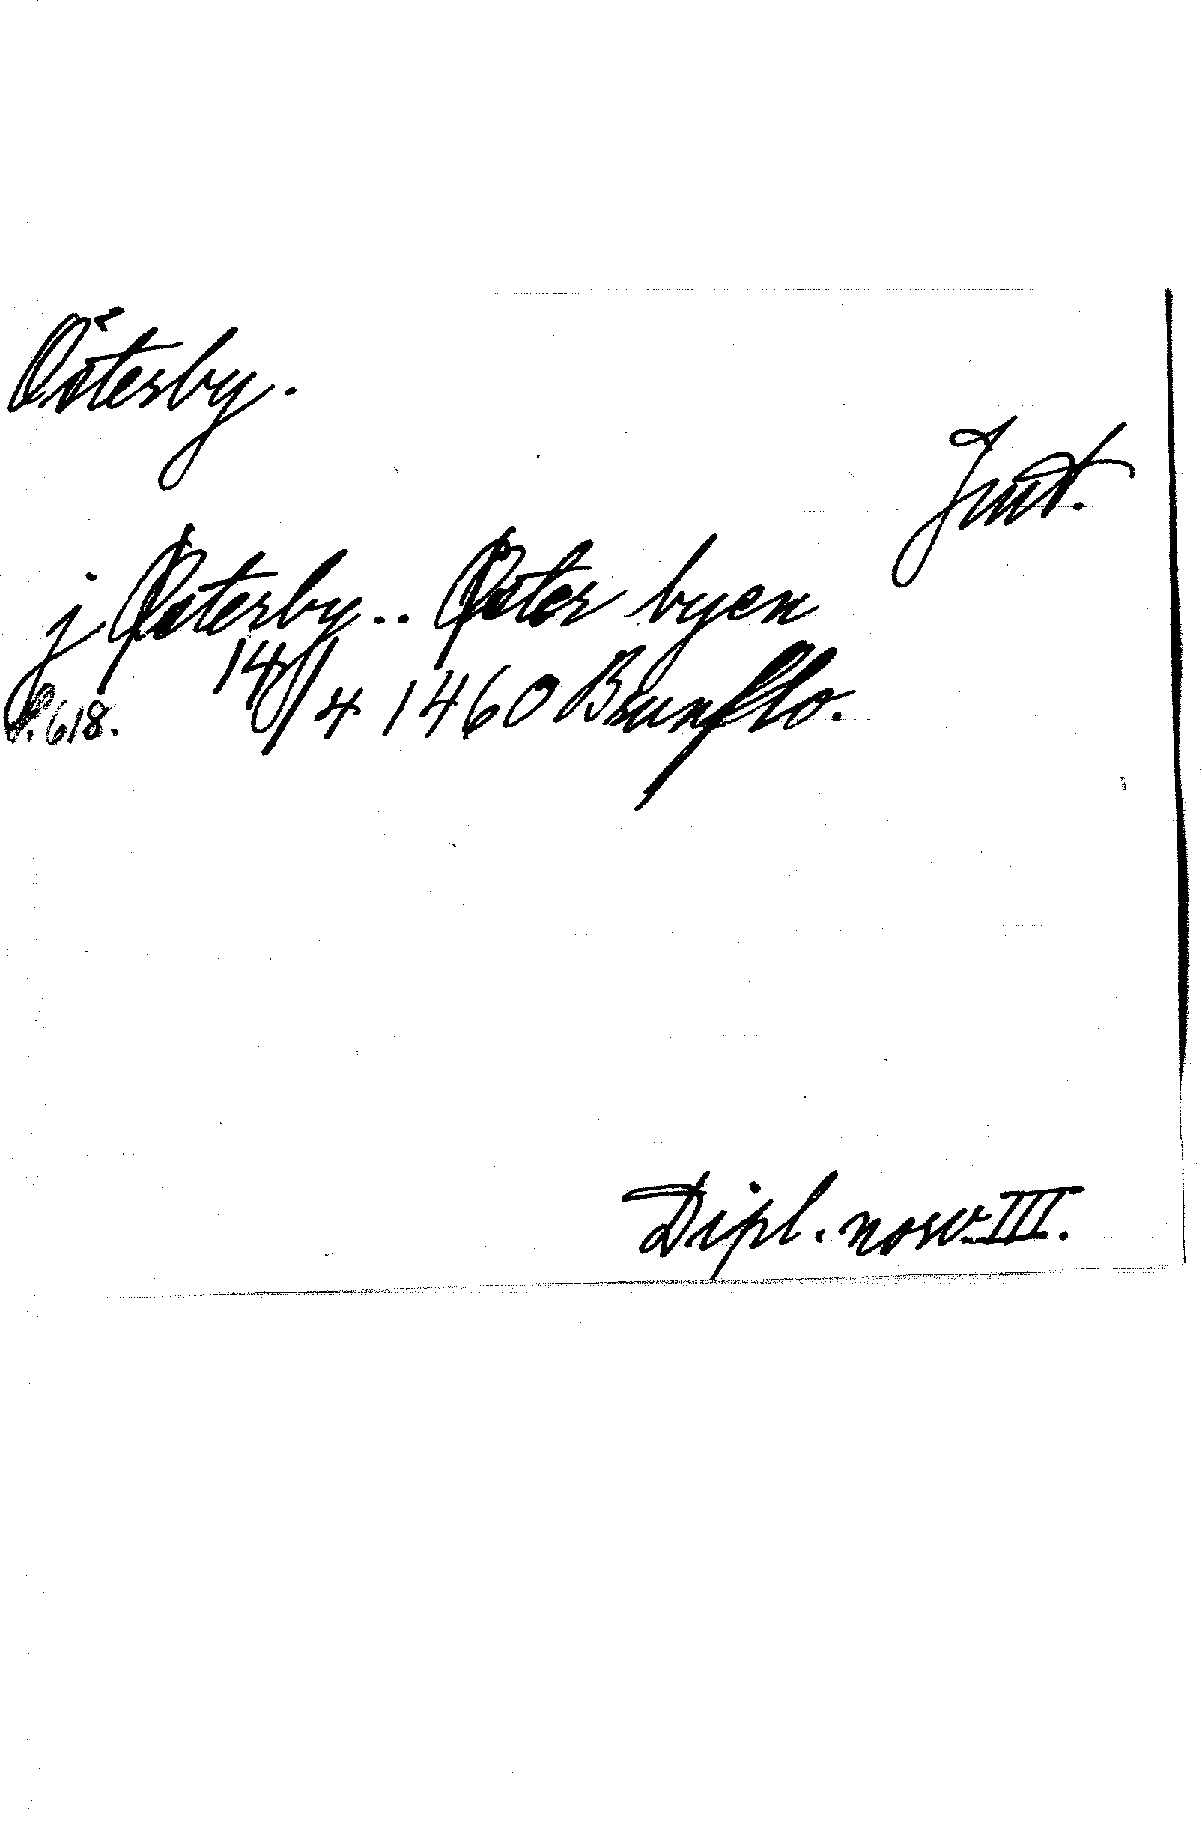 Österby.
Jmt.
j Østerby.. Øster byen
S. 618. 14/4 1460 Brunflo.
Dipl. norv. III.